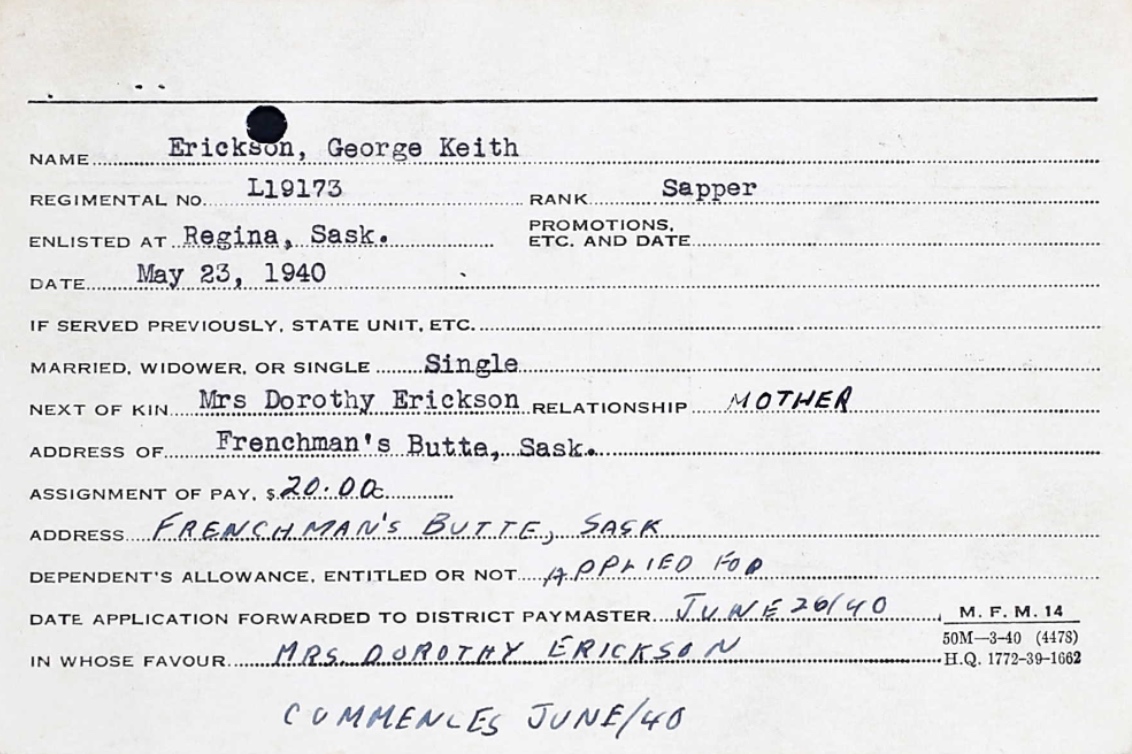 NAME Erickson, George Keith
REGIMENTAL NO. L19173 RANK Sapper
ENLISTED AT Regina, Sask. PROMOTIONS, ETC. AND DATE
DATE May 23, 1940
IF SERVED PREVIOUSLY, STATE UNIT, ETC.
MARRIED, WIDOWER, OR SINGLE Single
NEXT OF KIN Mrs Dorothy Erickson RELATIONSHIP MOTHER
ADDRESS OF Frenchman's Butte, Sask.
ASSIGNMENT OF PAY, $ 20.00
ADDRESS FRENCHMAN'S BUTTE, SASK
DEPENDENT'S ALLOWANCE, ENTITLED OR NOT APPLIED FOR
DATE APPLICATION FORWARDED TO DISTRICT PAYMASTER JUNE 26/40
M. F. M. 14
50M—3-40 (4478)
IN WHOSE FAVOUR MRS. DOROTHY ERICKSON
H.Q. 1772-39-1662
COMMENCES JUNE/40